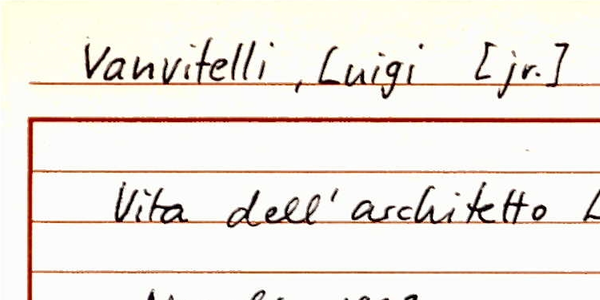 Vanvitelli, Luigi [jr.]
Vita dell'architetto L